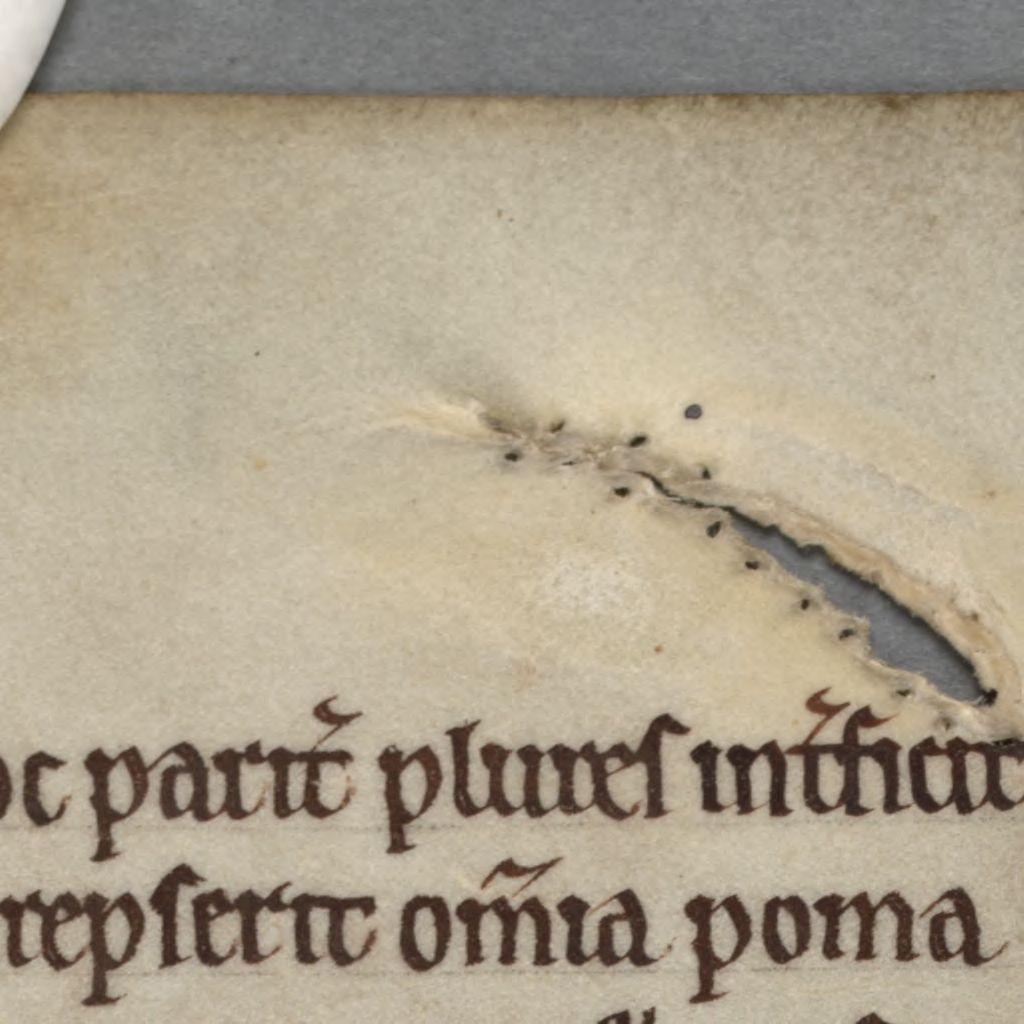 oc parit̃ plures int̃ficit
repserit om̃ia poma